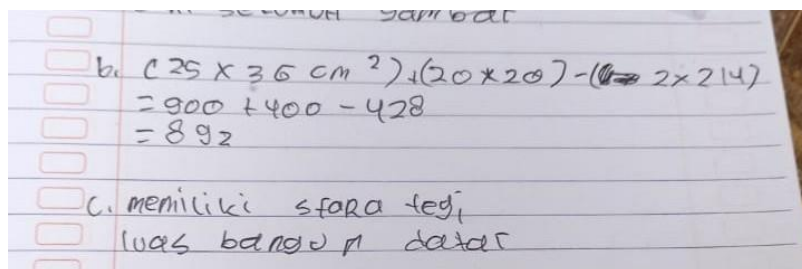 gambar
b. (25 x 36 cm²)+(20x20)-( 2x214)
= 900 + 400 - 428
= 892
c. memiliki sfara tegi
luas bangun datar